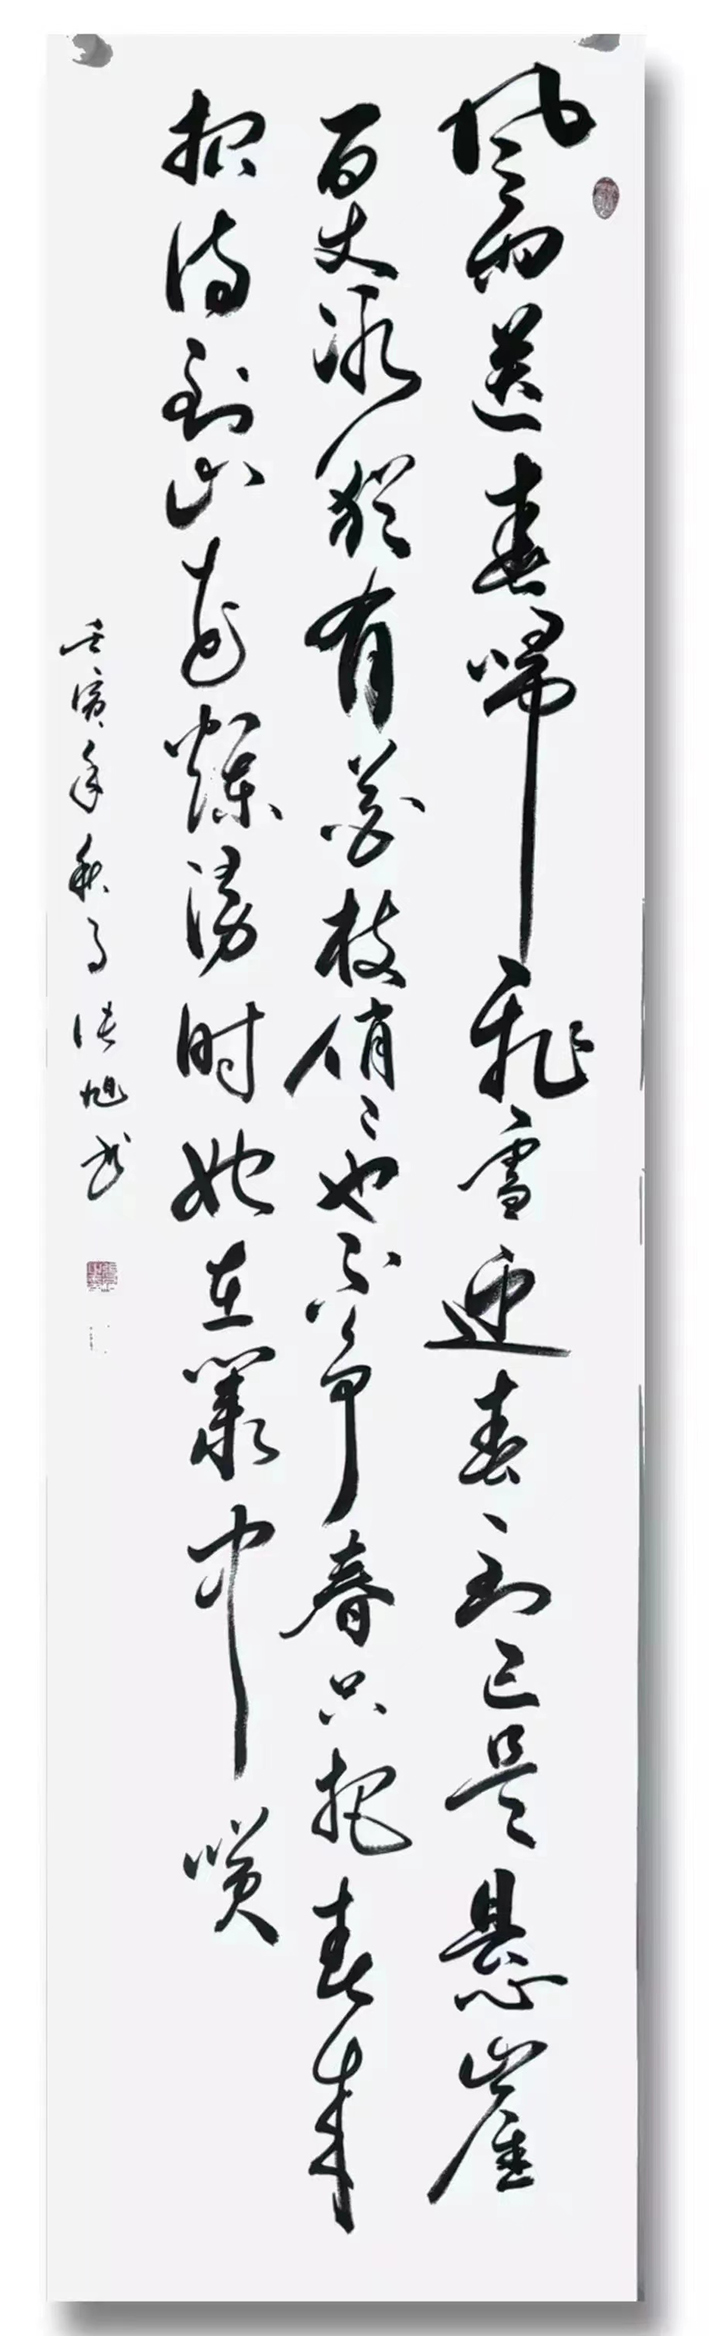 风雨送春归飞雪迎春到已是悬崖
百丈冰犹有花枝俏俏也不争春只把春来
报待到山花烂漫时她在丛中笑
壬寅年秋月张旭书